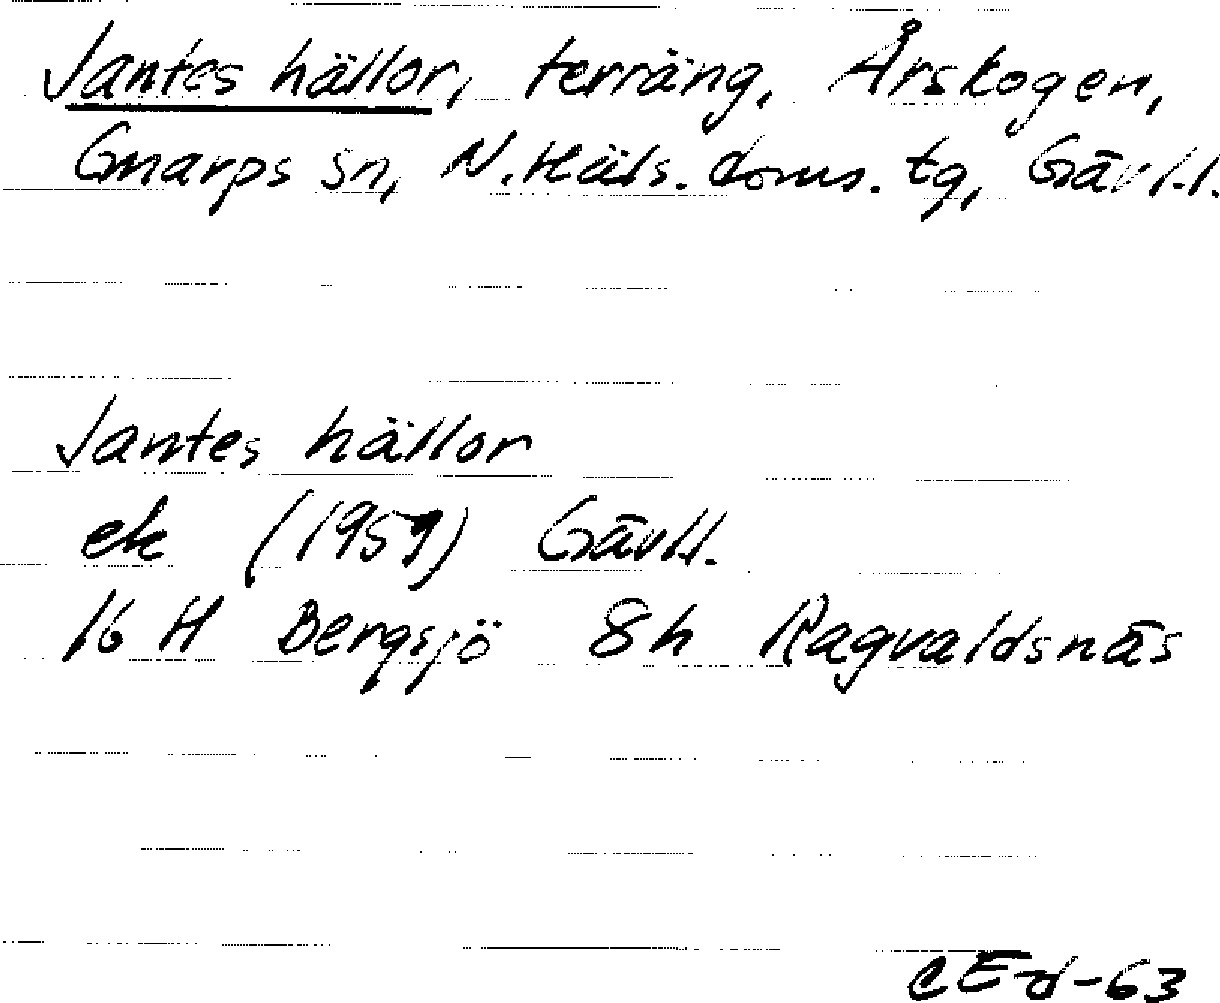 Jantes hällor, terräng, Årskogen,
Gnarps sn, N. Häls. doms. tg, Gävl.l.
Jantes hällor
ek (1959) Gävl.l.
16 H Bergsjö 8h Ragvaldsnäs
CE-d-63